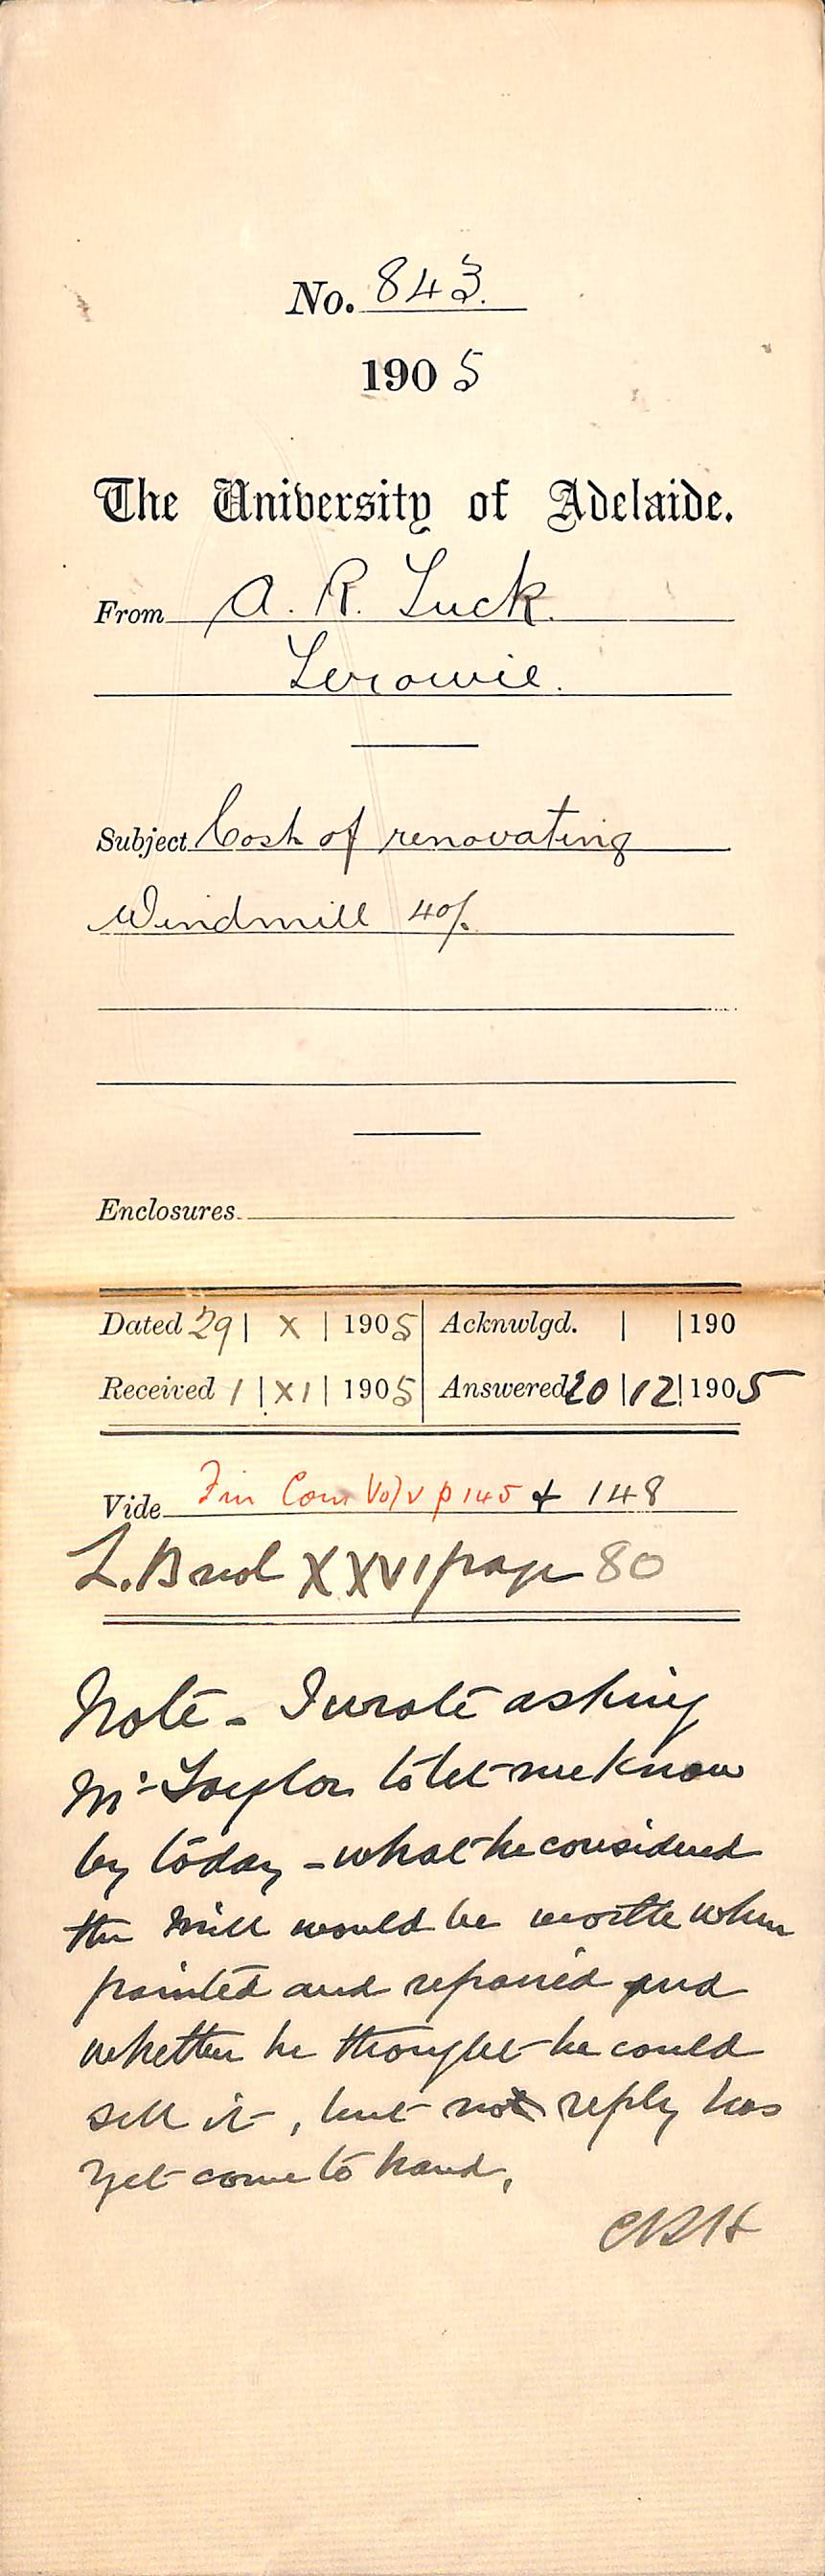 No. 843.
1905
The University of Adelaide.
From A. R. Luck.
Terowie.
Subject Cost of renovating
Windmill 40/.
Enclosures
Dated 29 | X | 1905 Acknwlgd. | | 190
Received 1 | XI | 1905 Answered 20 | 12 | 1905
Vide Fin Com Vol V p 145 & 148
L. B vol XXVI page 80
Note - I wrote asking
Mr Taylor to let me know
by today - what he considered
the mill would be worth when
painted and repaired and
whether he thought he could
sell it, but no reply has
yet come to hand,
CRH